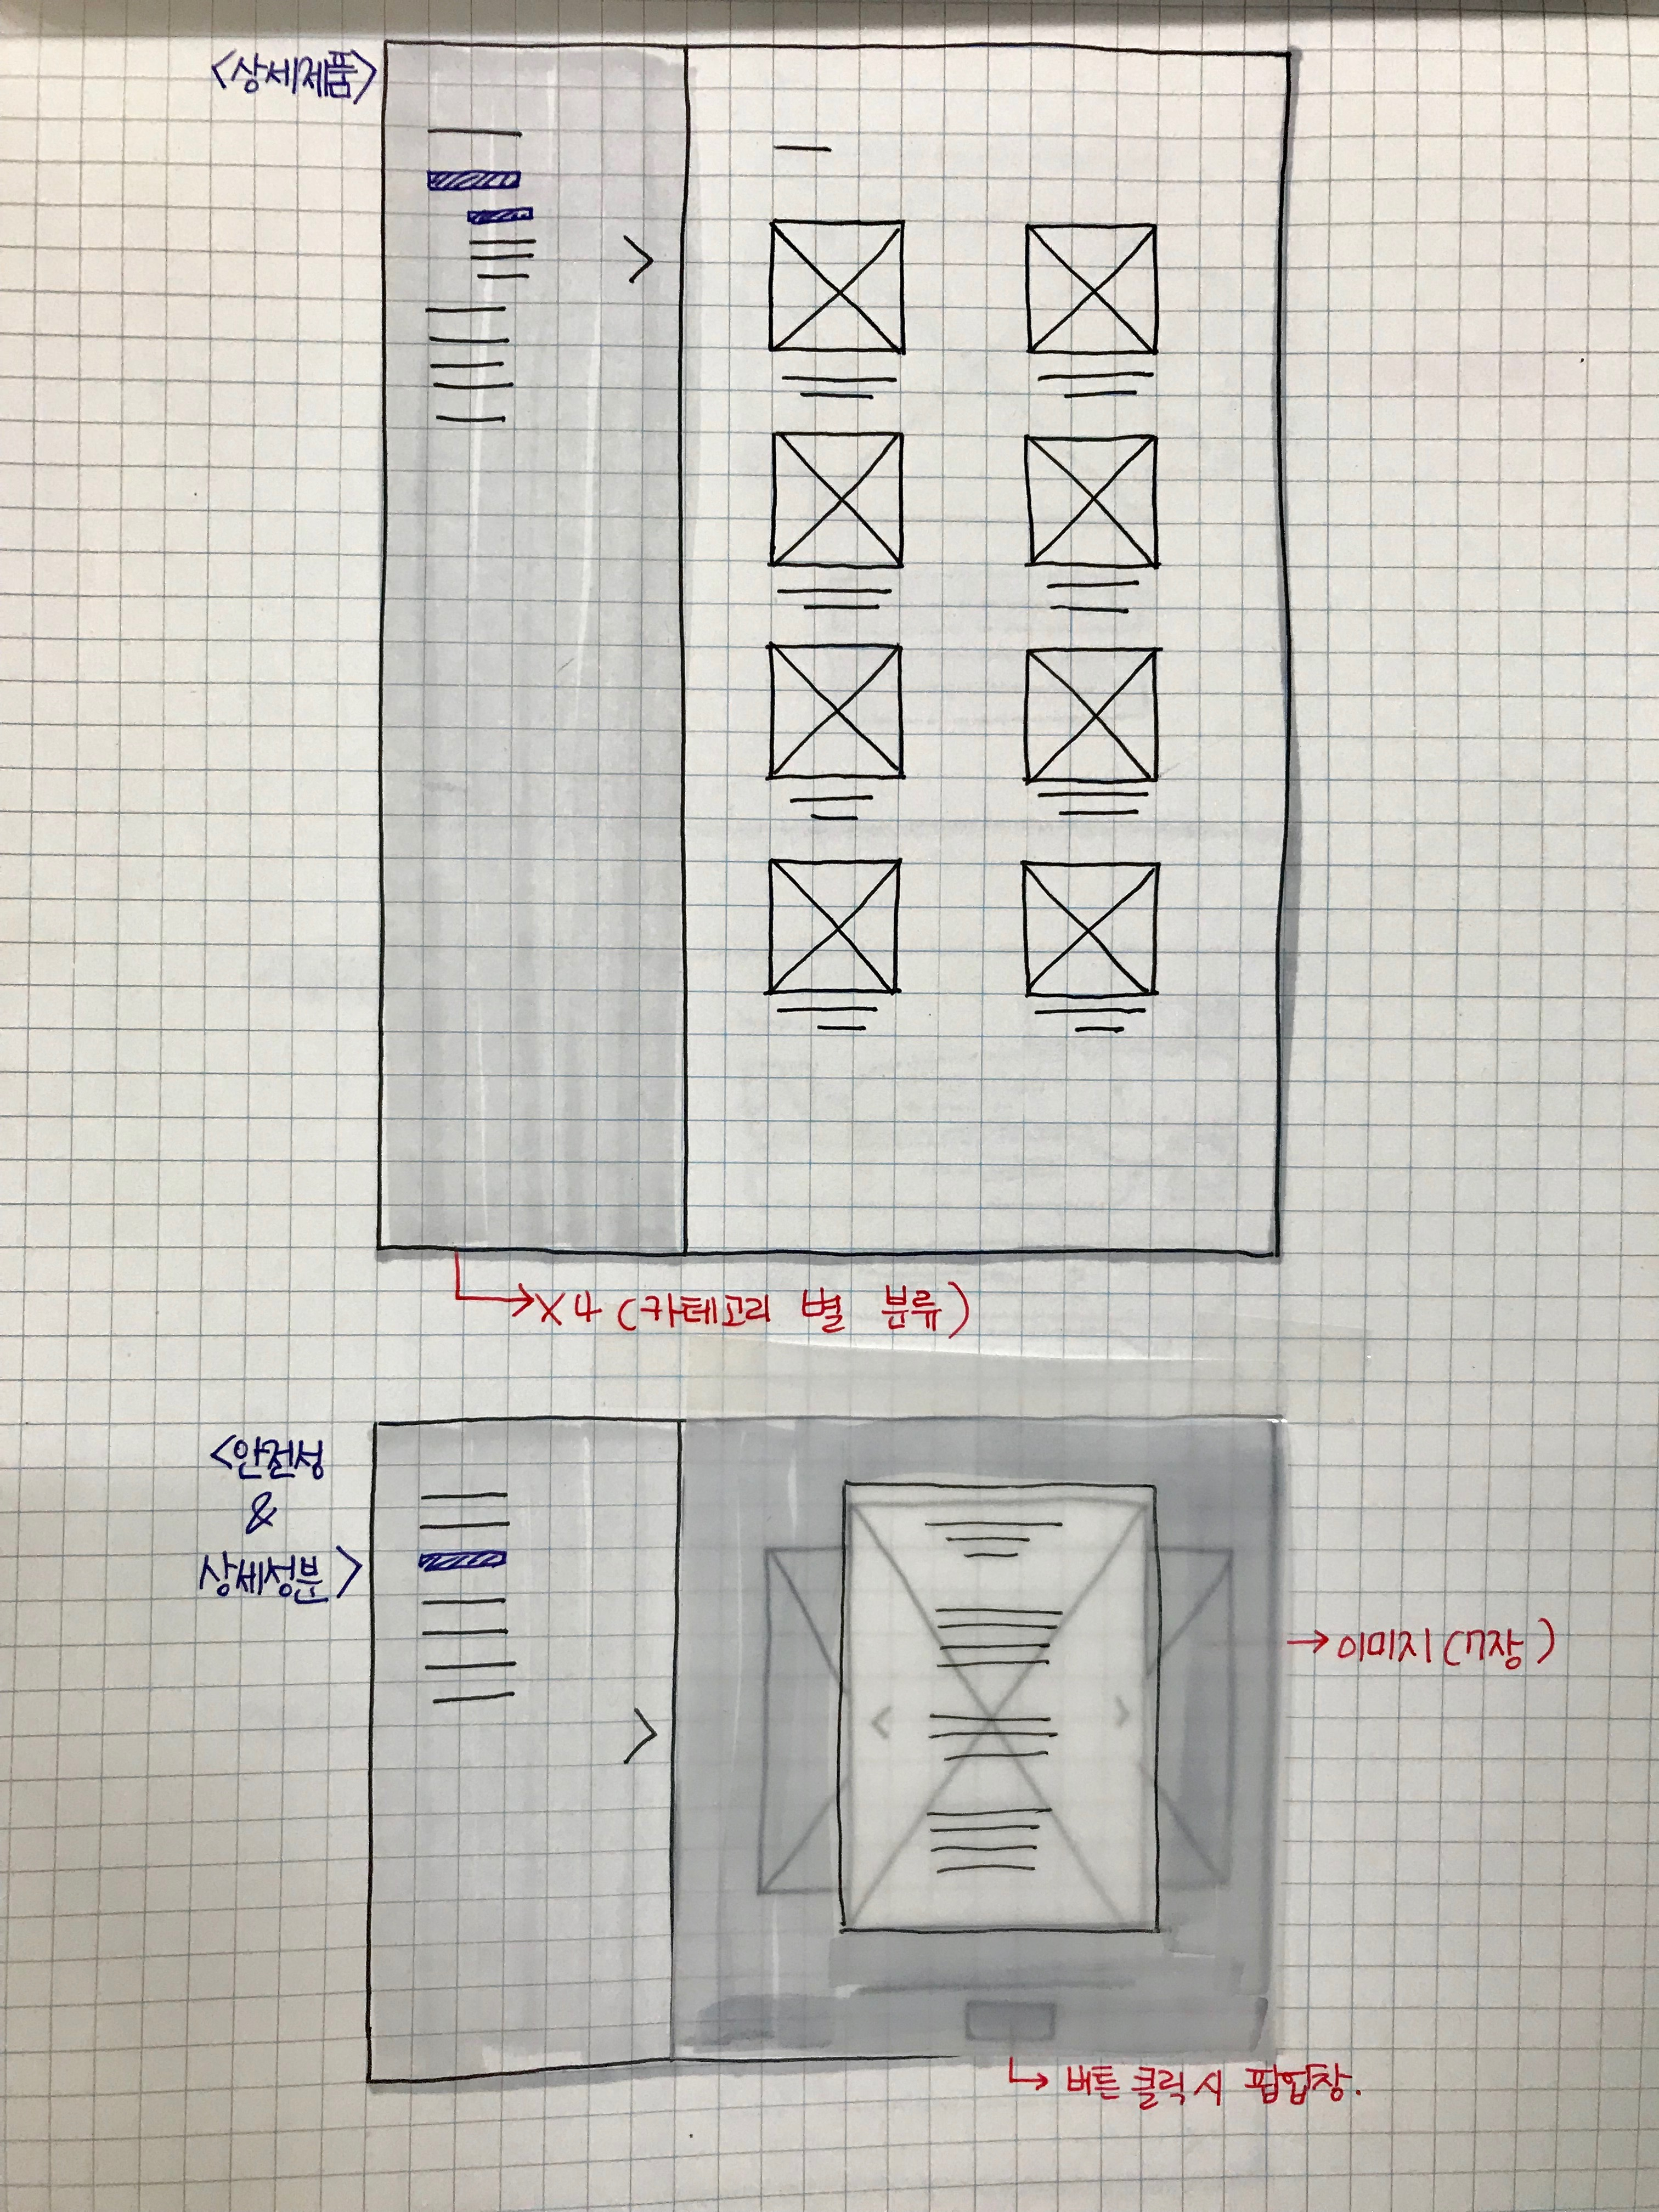 <상세제품>
→X4 (카테고리 별 분류)
<안전성
&
상세성분>
→이미지(7장)
→ 버튼 클릭 시 팝업창.